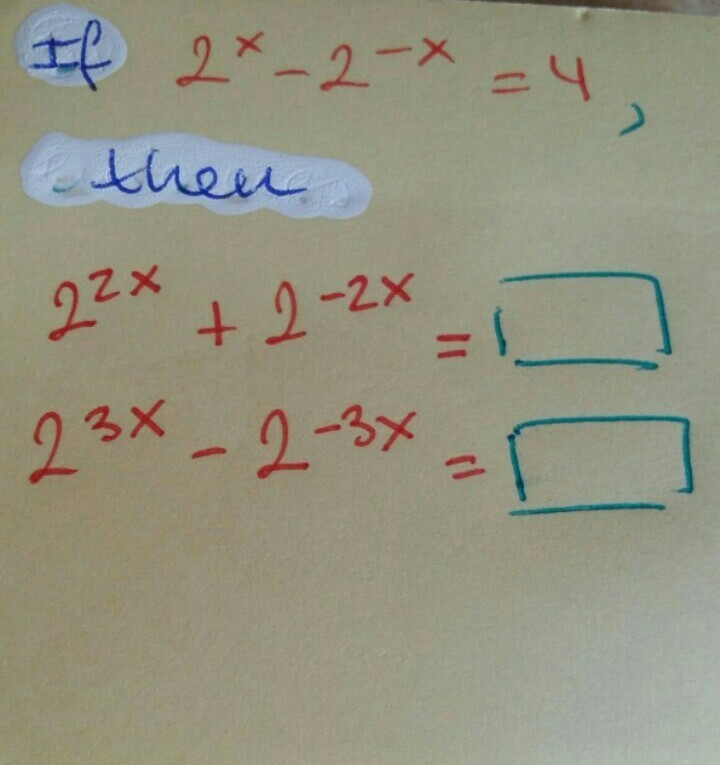 If 2ˣ - 2⁻ˣ = 4,
then
2²ˣ + 2⁻²ˣ =
2³ˣ - 2⁻³ˣ =